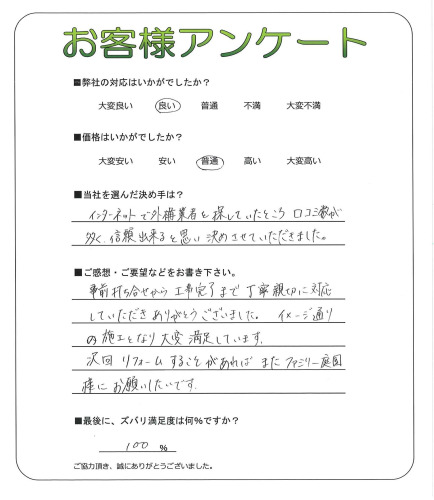 お客様アンケート
■弊社の対応はいかがでしたか？
大変良い　良い　普通　不満　大変不満
■価格はいかがでしたか？
大変安い　安い　普通　高い　大変高い
■当社を選んだ決め手は？
インターネットで外構業者を探していたところ 口コミ数が
多く、信頼出来ると思い決めさせていただきました。
■ご感想・ご要望などをお書き下さい。
事前打ち合せから工事完了まで丁寧親切に対応
していただきありがとうございました。 イメージ通り
の施工となり大変満足しています。
次回リフォームすることがあればまたファミリー庭園
様にお願いしたいです。
■最後に、ズバリ満足度は何％ですか？
100 ％
ご協力頂き、誠にありがとうございました。